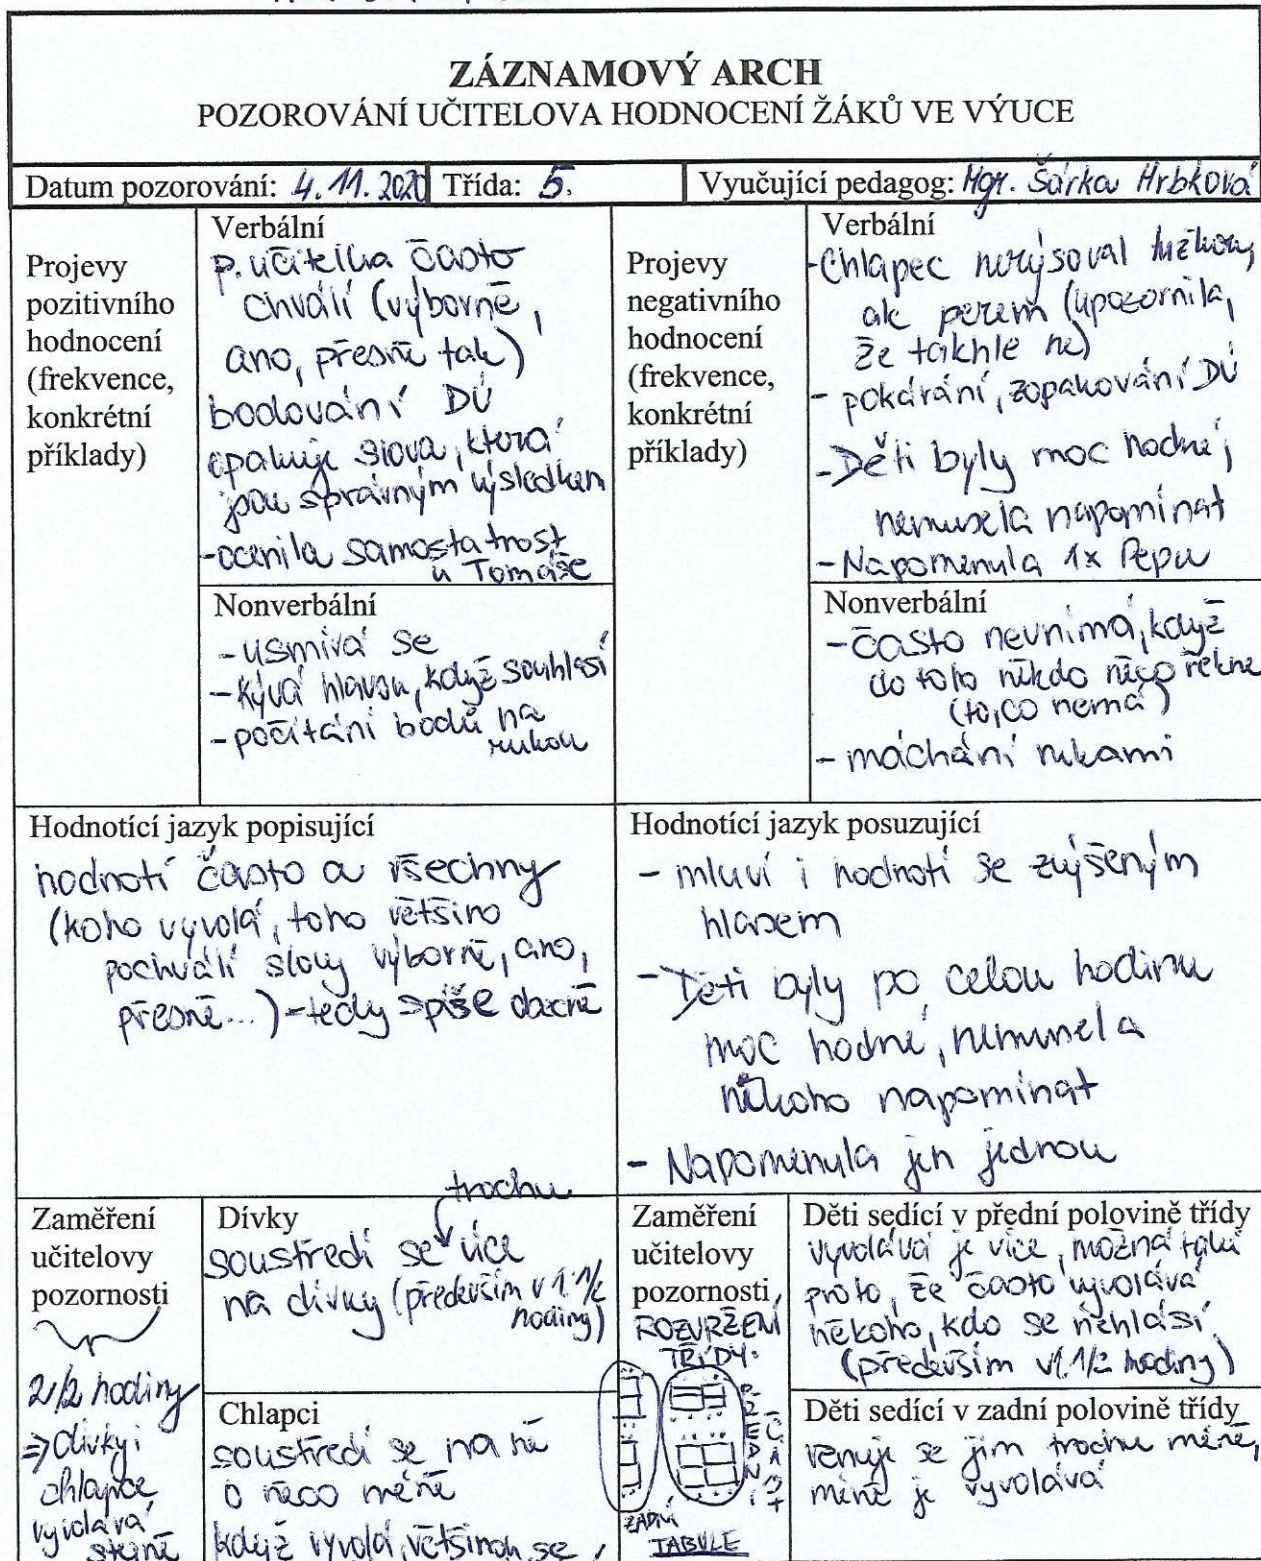 ZÁZNAMOVÝ ARCH
POZOROVÁNÍ UČITELOVA HODNOCENÍ ŽÁKŮ VE VÝUCE
Datum pozorování: 4. 11. 2020
Třída: 5.
Vyučující pedagog: Mgr. Šárka Hrbková
Projevy
pozitivního
hodnocení
(frekvence,
konkrétní
příklady)
Verbální
p. učitelka často
chválí (výborně,
ano, přesně tak)
bodování DÚ
opakuje slova, která
jsou správným výsledkem
-ocenila samostatnost
u Tomáše
Nonverbální
- usmívá se
- kývá hlavou, když souhlasí
- počítání bodů na
rukou
Projevy
negativního
hodnocení
(frekvence,
konkrétní
příklady)
Verbální
- Chlapec nerýsoval tužkou,
ale perem (upozornila,
že takhle ne)
- pokárání, zopakování DÚ
- Děti byly moc hodné,
nemusela napomínat
- Napomenula 1x Pepu
Nonverbální
- často nevnímá, když
do toho někdo něco řekne
(to, co nemá)
- máchání rukami
Hodnotící jazyk popisující
hodnotí často a všechny
(koho vyvolá, toho většino
pochválí slovy výborně, ano,
přesně...) - tedy spíše obecně
Hodnotící jazyk posuzující
- mluví i hodnotí se zvýšeným
hlasem
- Děti byly po celou hodinu
moc hodné, nemusela
nikoho napomínat
- Napomenula jen jednou
Zaměření
učitelovy
pozornosti
2. 1/2 hodiny
⇒ dívky i
chlapce
vyvolává
stejně
Dívky
trochu
soustředí se více
na dívky (především v 1. 1/2
hodiny)
Chlapci
soustředí se na ně
o něco méně
když vyvolá, většinou se
Zaměření
učitelovy
pozornosti,
ROZVRŽENÍ
TŘÍDY:
PŘEDNÍ
ČÁST
ZADNÍ
TABULE
Děti sedící v přední polovině třídy
vyvolává je více, možná také
proto, že často vyvolává
někoho, kdo se nehlásí
(především v 1. 1/2 hodiny)
Děti sedící v zadní polovině třídy
věnuje se jim trochu méně,
méně je vyvolává